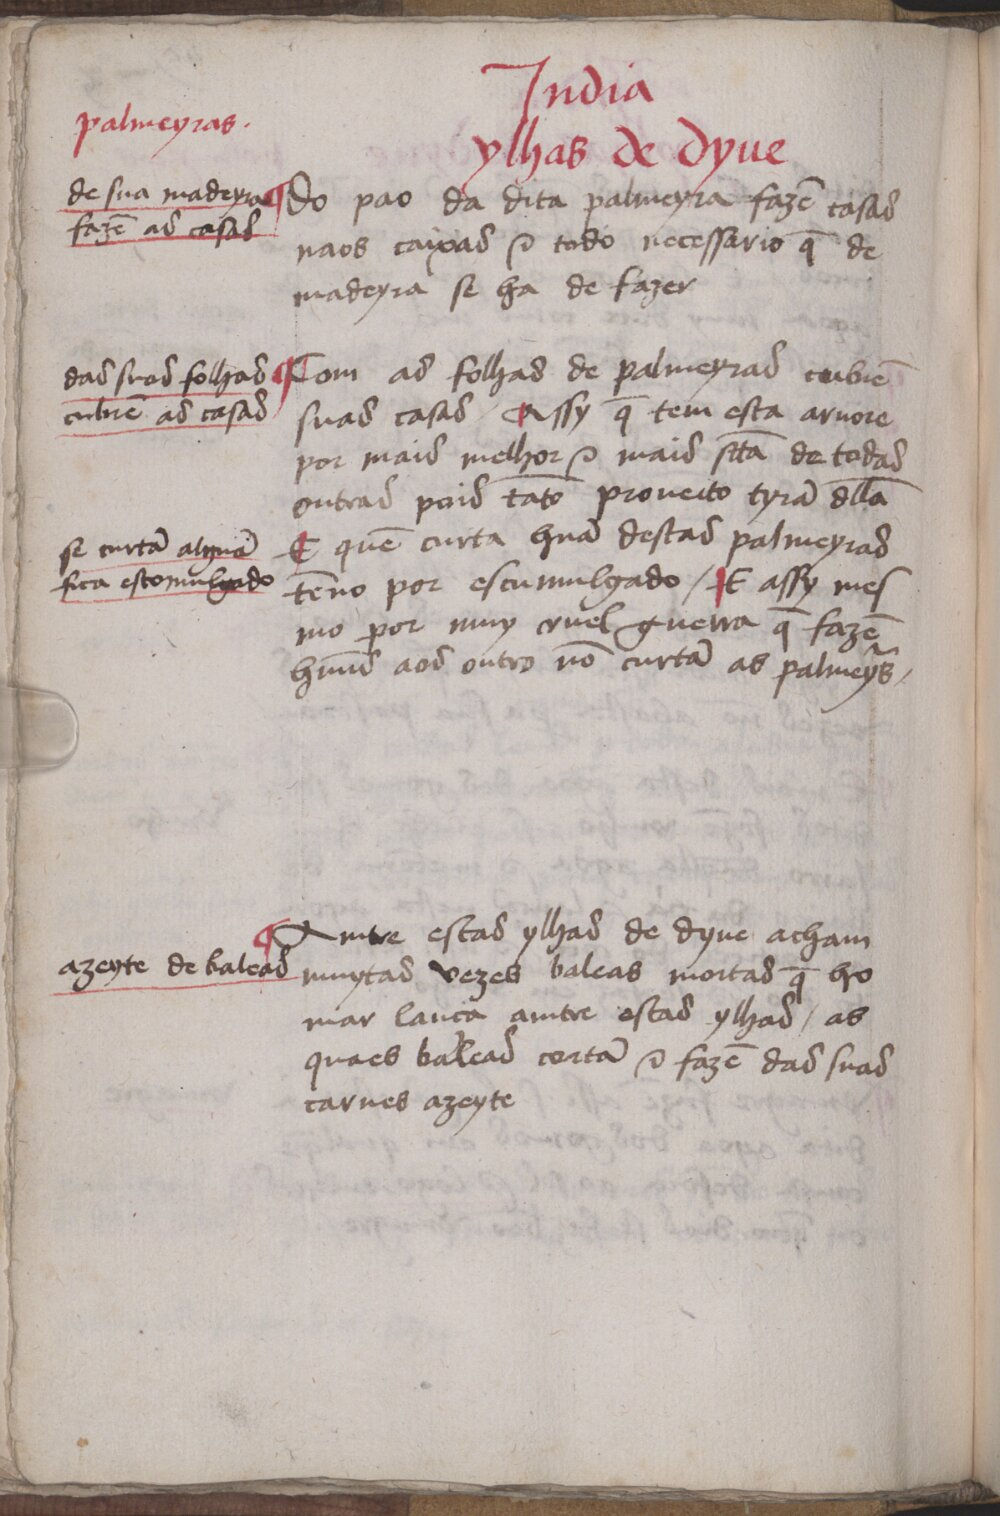 India
ylhas de dyue
palmeyras.
de sua madeyra
fazẽ as casas
¶ Do pao da dita palmeyra fazẽ casas
naos caixas & todo necessario q̃ de
madeyra se ha de fazer
das suas folhas
cubrẽ as casas
¶ Com as folhas de palmeyras cubrẽ
suas casas / Assy q̃ tem esta aruore
por mais melhor & mais sctã de todas
outras pois tãto proueito tyrã dlla
se curtã algũa
fica escomulgado
¶ E quẽ curta hũa destas palmeyras
tẽno por escumulgado / E assy mes
mo por muy cruel guerra q̃ fazẽ
hũus aos outro nõ curtã as palmeyrs̃ /
azeyte de baleas
¶ Amtre estas ylhas de dyue acham
muytas vezes baleas mortas q̃ ho
mar lança amtre estas ylhas / as
quaes baleas cortã & fazẽ das suas
carnes azeyte